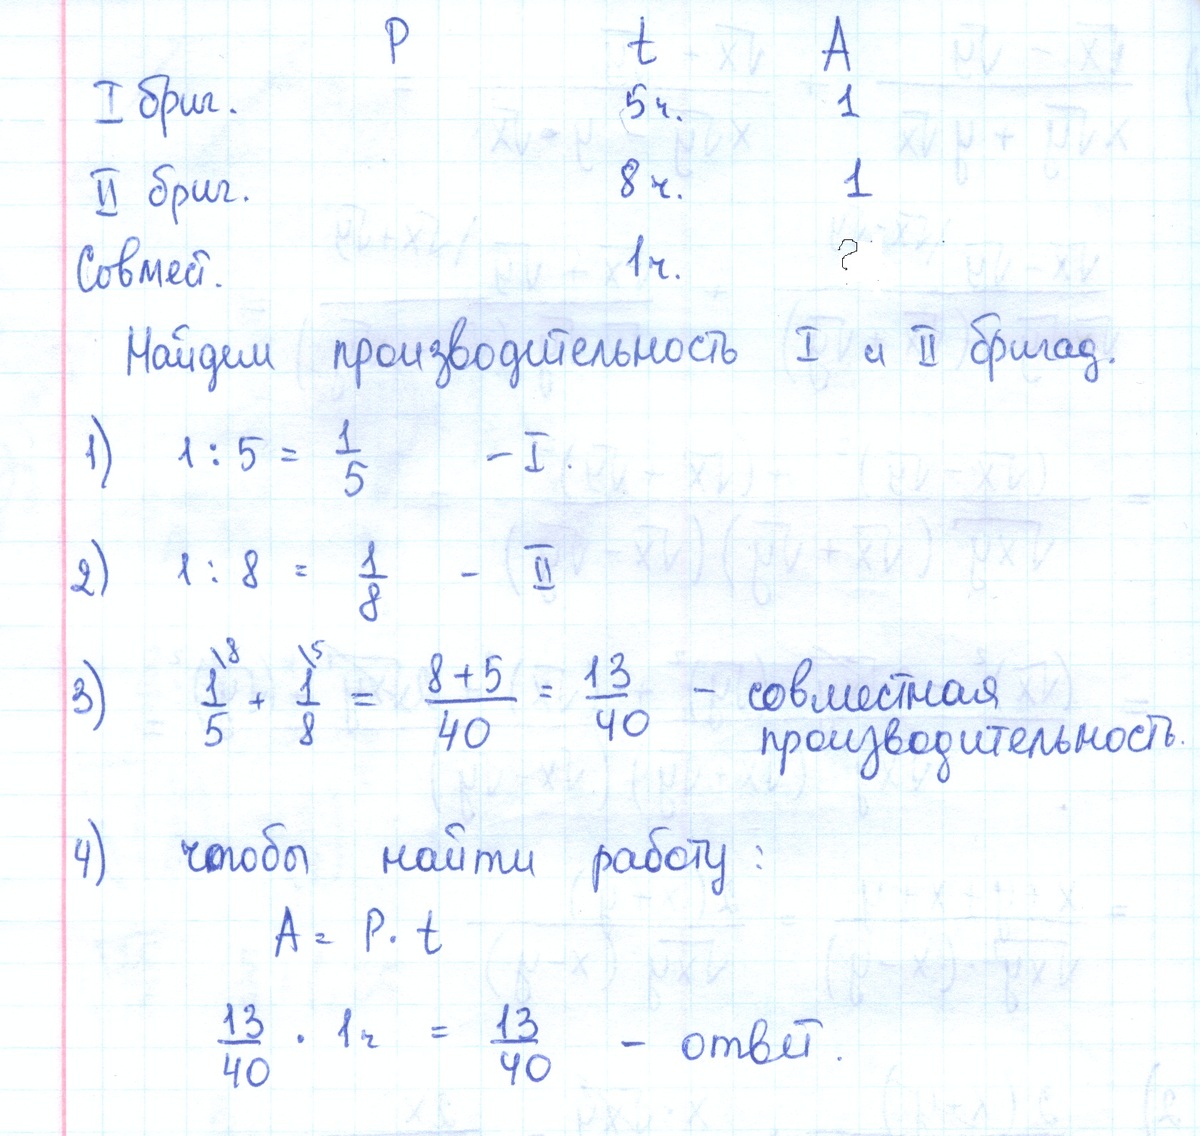 P t A
I бриг. 5ч. 1
II бриг. 8ч. 1
Совмест. 1ч. ?
Найдем производительность I и II бригад.
1) 1 : 5 = 1/5 – I.
2) 1 : 8 = 1/8 – II
3) 1/5 \8 + 1/8 \5 = (8+5)/40 = 13/40 – совместная
производительность.
4) чтобы найти работу:
A = P · t
13/40 · 1ч = 13/40 – ответ.